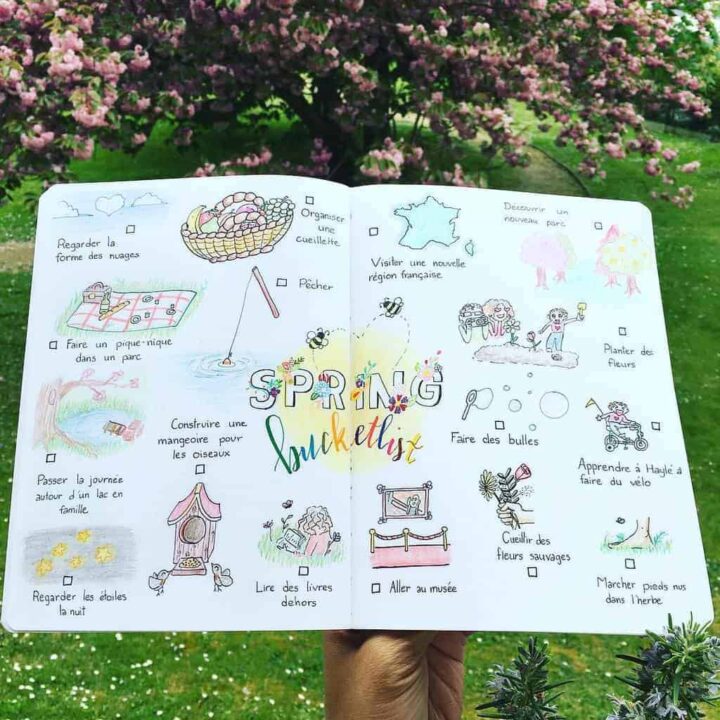 Regarder la
forme des nuages
Organiser
une
cueillette
Pêcher
Faire un pique-nique
dans un parc
Construire une
mangeoire pour
les oiseaux
Passer la journée
autour d'un lac en
famille
Regarder les étoiles
la nuit
Lire des livres
dehors
SPRING
bucketlist
Visiter une nouvelle
région française
Découvrir un
nouveau parc
Planter des
fleurs
Faire des bulles
Apprendre à Haylé à
faire du vélo
Cueillir des
fleurs sauvages
Aller au musée
Marcher pieds nus
dans l'herbe